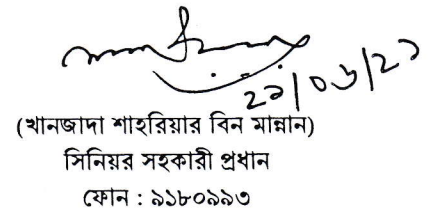 (খানজাদা শাহরিয়ার বিন মান্নান)
সিনিয়র সহকারী প্রধান
ফোন : ৯১৮০৯৯৩